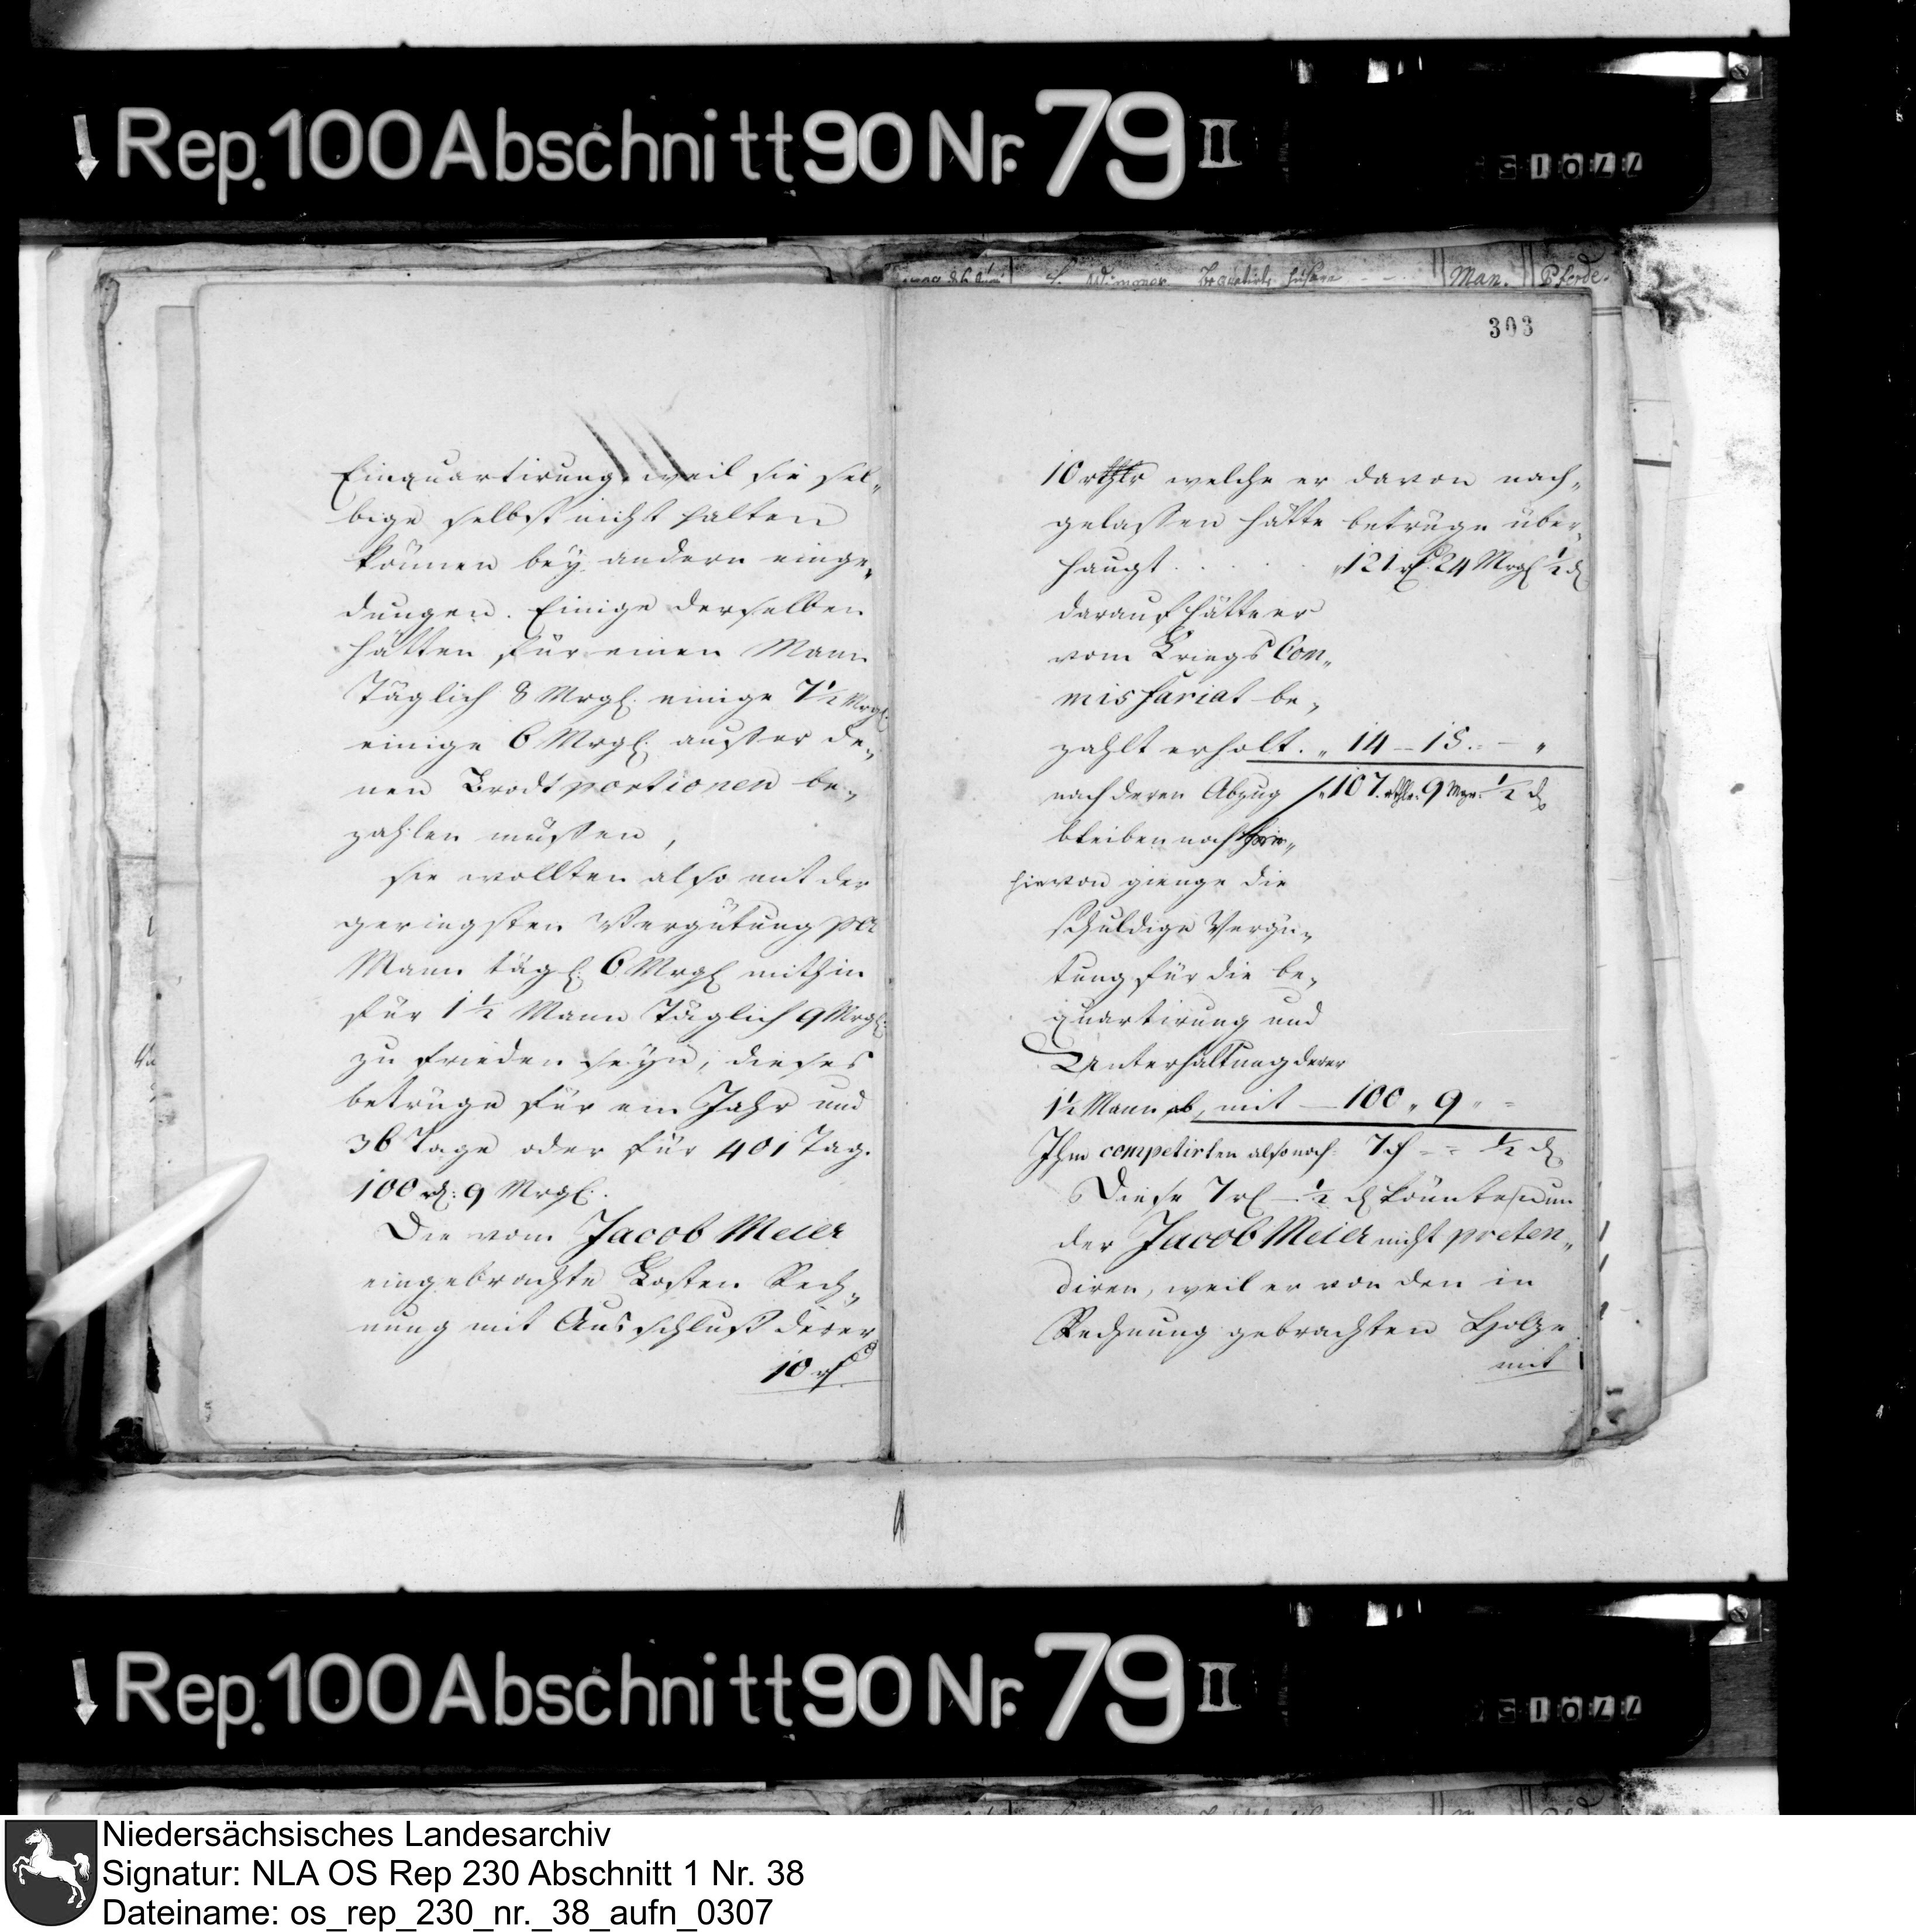 Rep. 100 Abschnitt 90 Nr. 79 II
Man. Pferde.
303
Einquartirung, weil sie sel„
bige selbst nicht halten
können bey andern einge„
dungen. Einige derselben
hätten für einen Mann
Täglich 8 Mrgl. einige 7½ Mrgl.
einige 6 Mrgl. außer de„
nen Brodt portionen be„
zahlen müßen,
sie wollten also mit der
geringsten Vergütung pro
Mann tägl. 6 Mrgl mithin
für 1½ Mann Täglich 9 Mrgl.
zu frieden seyn, dieses
betrüge für ein Jahr und
36 Tage oder für 401 Tag.
100 rl: 9 Mrgl.
Die vom Jacob Meier
eingebrachte Kosten Rech„
nung mit Ausschluß derer
10 rl
10 rthlr welche er davon nach„
gelaßen hätte betrüge über„
haupt . . . . „121 rl. 24 Mrgl ½ d
darauf hätte er
vom Kriegs Com„
missariat be„
zahlt erholt. „ 14 – 15. – „
nach deren Abzug „107. rthlr. 9 Mgr. ½ d
bleiben noch
hievon gienge die
schuldige Vergü„
tung für die be„
quartirung und
Unterhaltung derer
1½ Mann ab, mit — 100 „ 9 „ =
Ihm competirten also noch 7 rl = = ½ d
Diese 7 rl – ½ d könnte nun
der Jacob Meier nicht preten„
diren, weil er von den in
Rechnung gebrachten Holze
mit
Rep. 100 Abschnitt 90 Nr. 79 II
Niedersächsisches Landesarchiv
Signatur: NLA OS Rep 230 Abschnitt 1 Nr. 38
Dateiname: os_rep_230_nr._38_aufn_0307